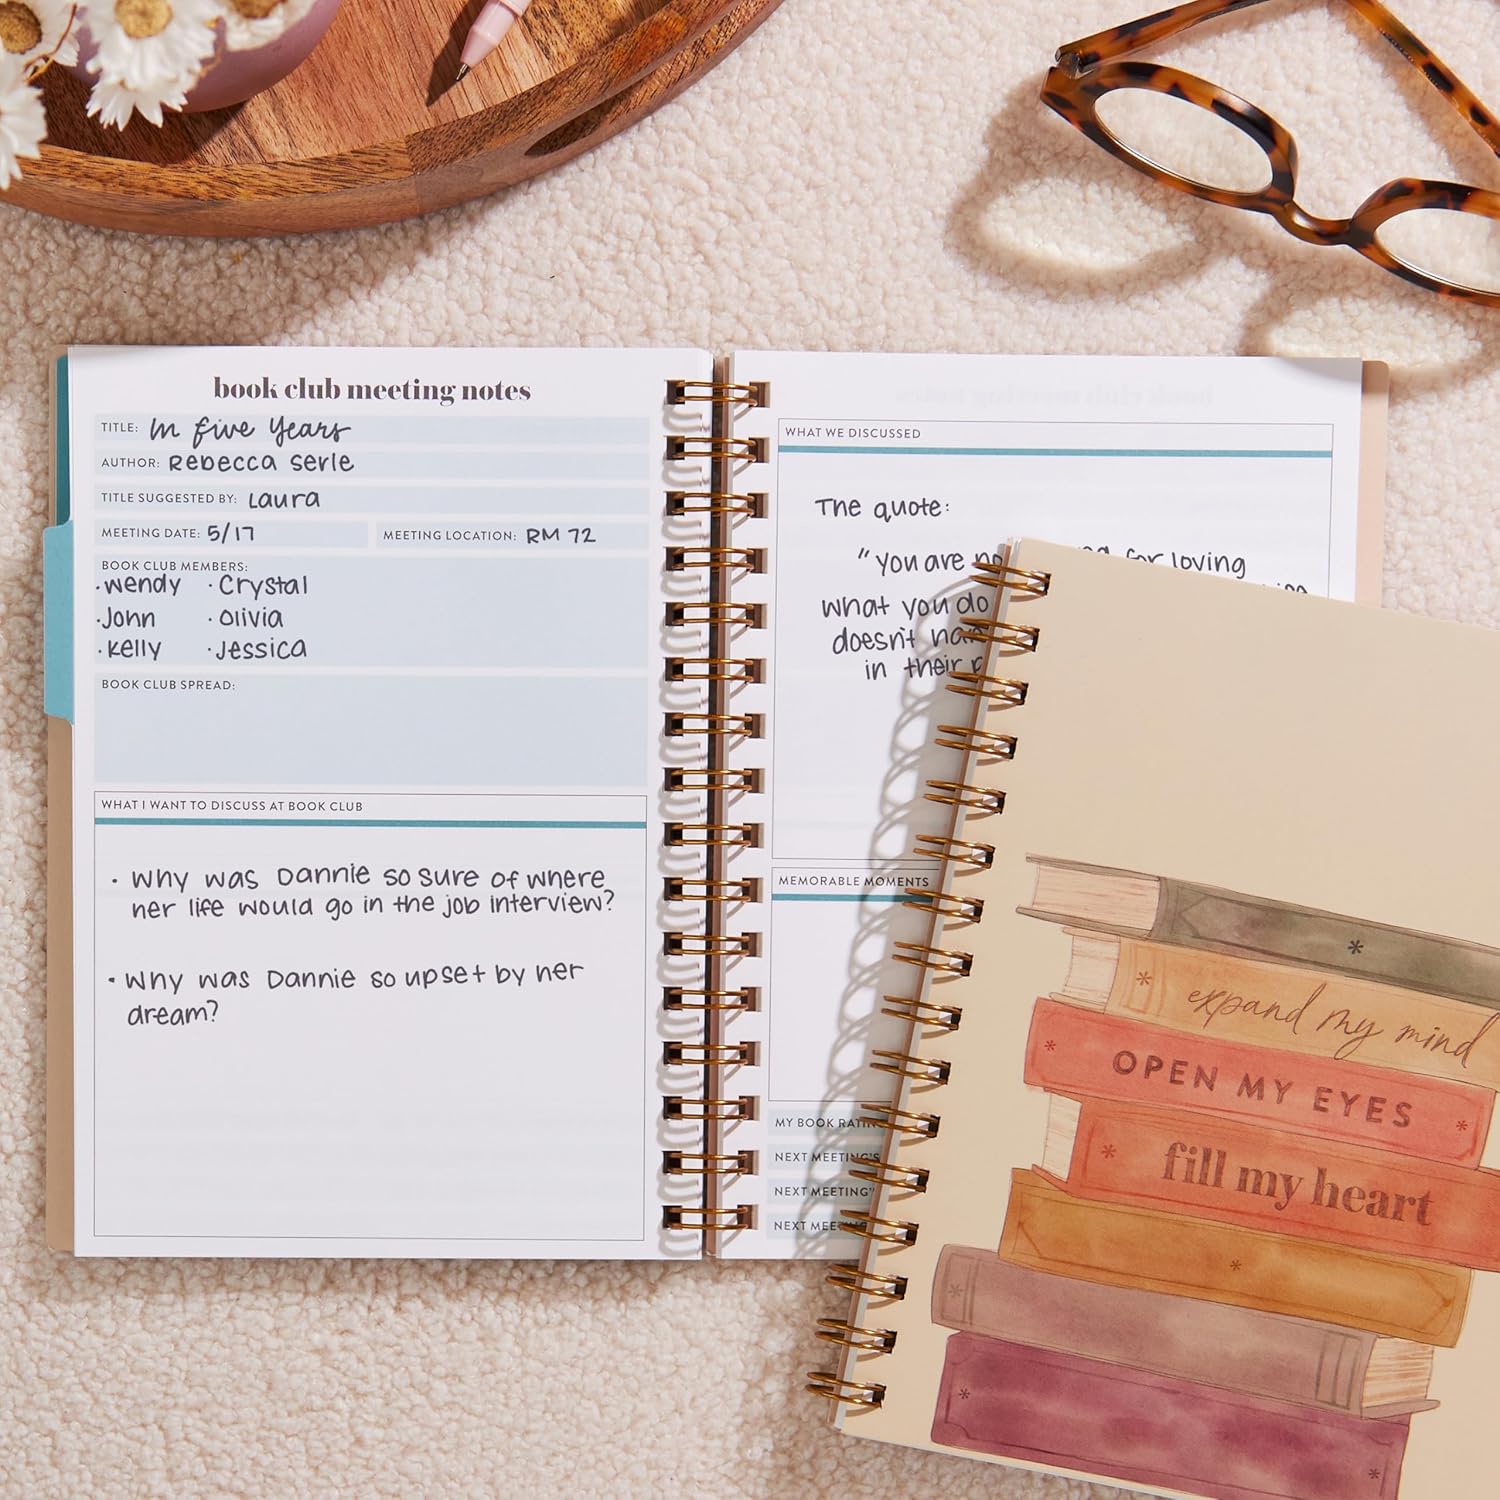 book club meeting notes
TITLE: In five Years
AUTHOR: Rebecca Serle
TITLE SUGGESTED BY: Laura
MEETING DATE: 5/17 MEETING LOCATION: RM 72
BOOK CLUB MEMBERS:
· Wendy · Crystal
· John · Olivia
· Kelly · Jessica
BOOK CLUB SPREAD:
WHAT I WANT TO DISCUSS AT BOOK CLUB
· Why was Dannie so sure of where
her life would go in the job interview?
· Why was Dannie so upset by her
dream?
WHAT WE DISCUSSED
The quote:
"You are for loving
what you do
doesn't
in their
MEMORABLE MOMENTS
MY BOOK
NEXT MEETING'S
NEXT MEETING'
NEXT
expand my mind
OPEN MY EYES
fill my heart